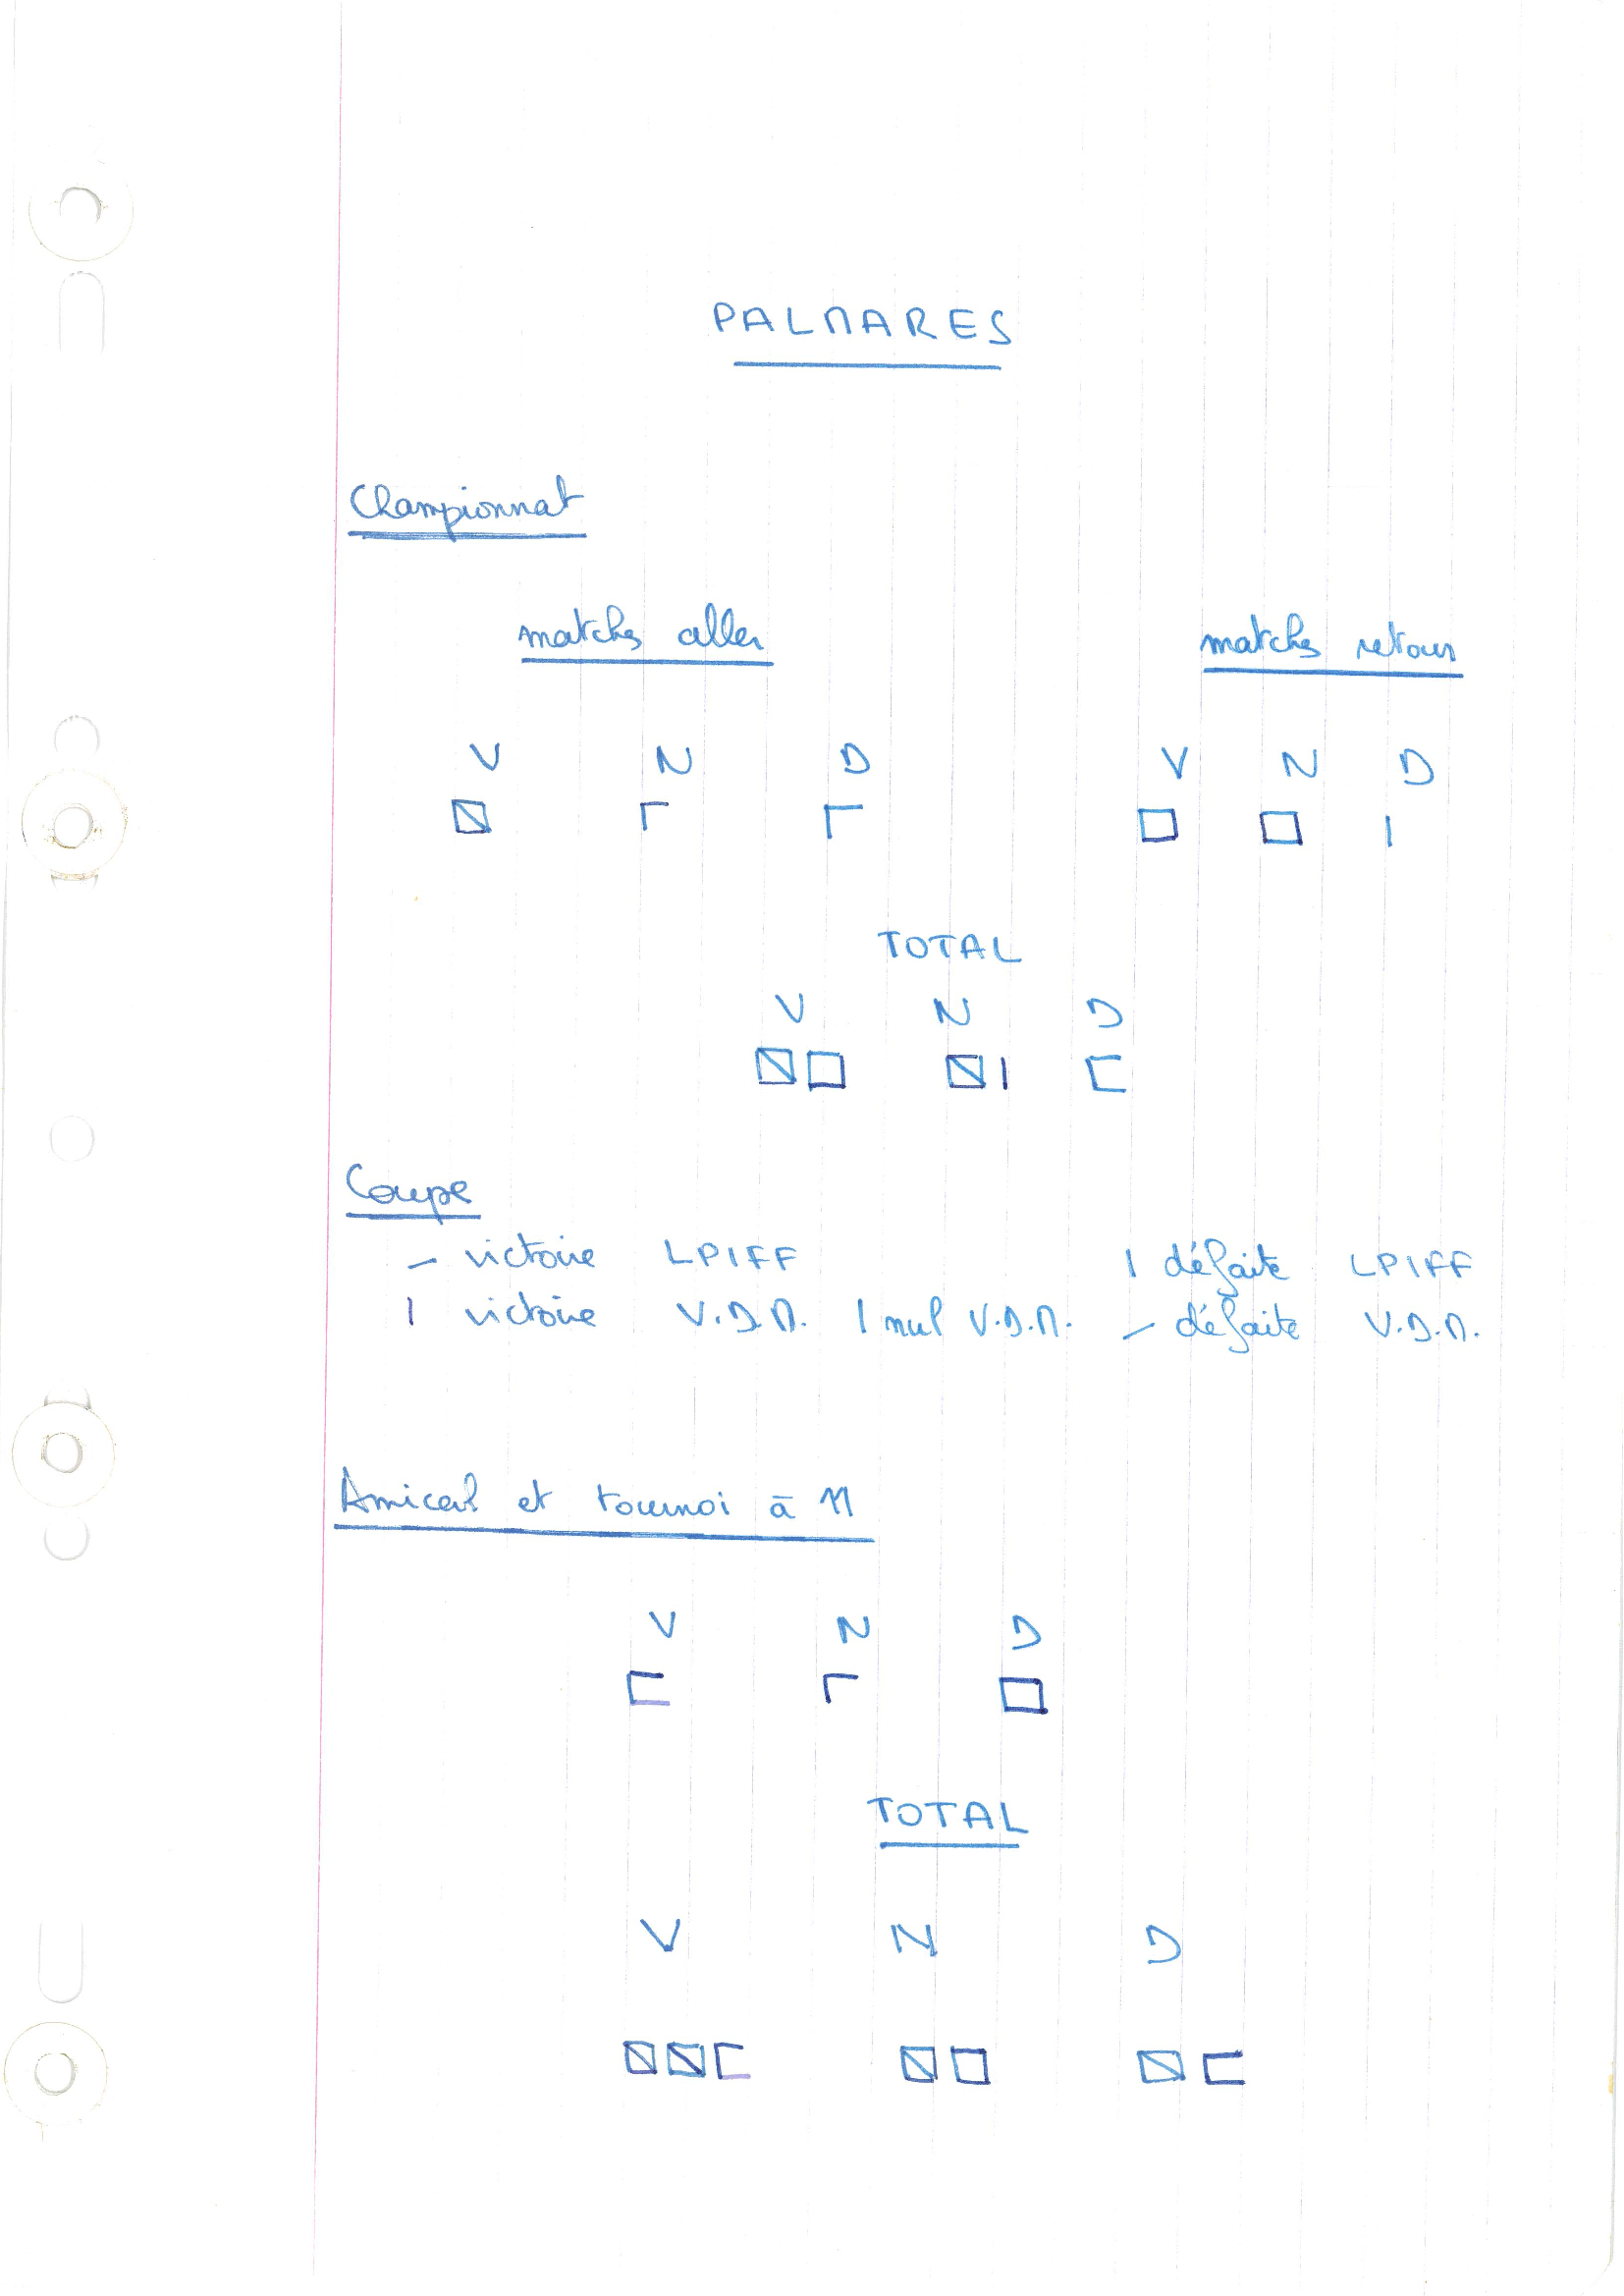 PALMARES
Championnat
matchs aller matchs retour
V N D V N D
TOTAL
V N D
Coupe
- victoire LPIFF 1 défaite LPIFF
1 victoire V.D.M. 1 nul V.D.M. - défaite V.D.M.
Amical et tournoi à 11
V N D
TOTAL
V N D